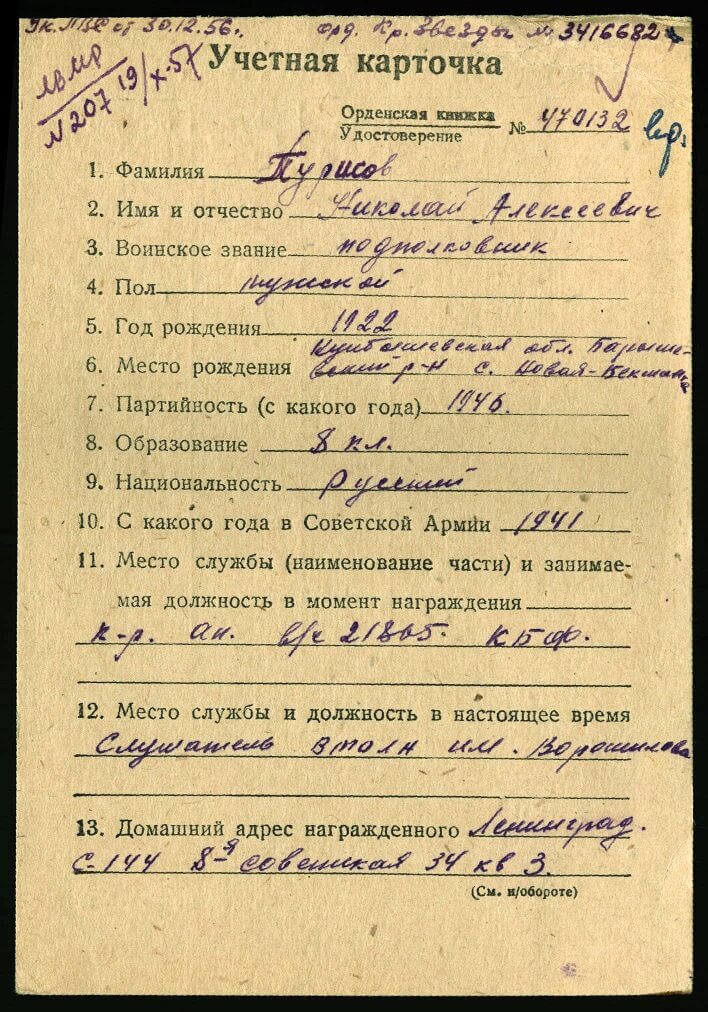 Ук. ПВС от 30.12.56г., орд. Кр. Звезды № 3416682
ЛВМР
№ 207 19/X-57
Учетная карточка
Орденская книжка
Удостоверение № 470132
1. Фамилия Пурисов
2. Имя и отчество Николай Алексеевич
3. Воинское звание подполковник
4. Пол мужской
5. Год рождения 1922
Куйбышевская обл. Барыше-
6. Место рождения вский р-н с. Новая-Бекшанка
7. Партийность (с какого года) 1946.
8. Образование 8 кл.
9. Национальность Русский
10. С какого года в Советской Армии 1941
11. Место службы (наименование части) и занимае-
мая должность в момент награждения
к-р. ап. в/ч 21865. КБФ.
12. Место службы и должность в настоящее время
Слушатель вмолн им. Ворошилова
13. Домашний адрес награжденного Ленинград.
С-144 8-я советская 34 кв 3.
(См. н/обороте)